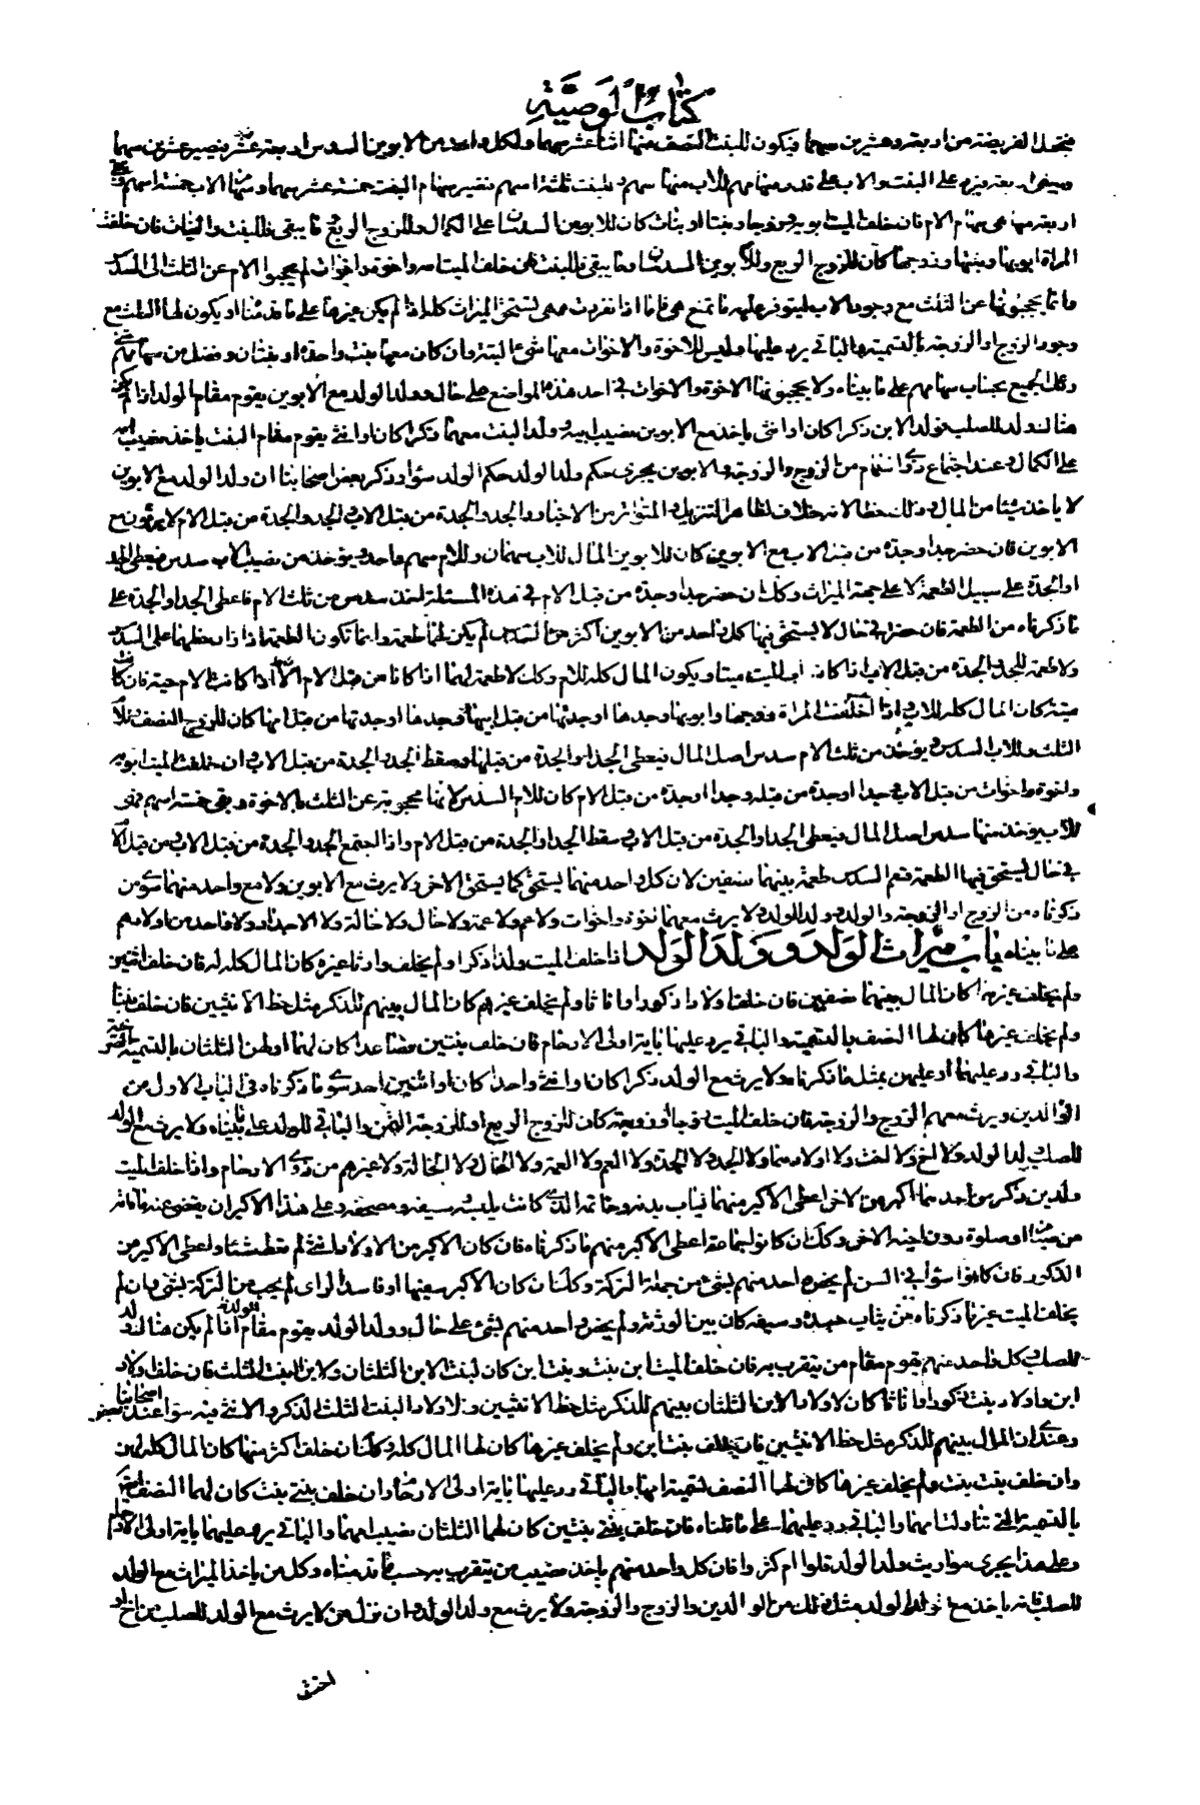 كتاب الوصية
فتجعل الفريضة من اربعة وعشرين سهما فيكون للبنت النصف منها اثنا عشر سهما ولكل واحد من الابوين السدس اربعة عشر سهما
ويبقى اربعة يرد على البنت والاب على قدر سهامهم للاب منها سهم وللبنت ثلثة اسهم فتصير سهام البنت خمسة عشر سهما وسهام الاب خمسة اسهم
اربعة منها هى سهام الام فان خلف الميت ابويه وزوجا وبنتا او بنات كان للابوين السدسان على الكمال وللزوج الربع وما يبقى فللبنت والبنات فان خلفت
المراة ابويها وبنيها وزوجها كان للزوج الربع وللابوين السدسان وما يبقى للبنت فان خلف الميت اخوة واخوات لم يحجبوا الام عن الثلث الى السدس
وانما يحجبونها عن الثلث مع وجود الاب ليتوفر عليه فاما اذا انفردت فهى تستحق الميراث كله اذا لم يكن غيرها على ما قدمناه ويكون لها الثلث مع
وجود الزوج او الزوجة بالتسمية والباقى يرد عليها وليس للاخوة والاخوات معها شئ البتة وان كان معها بنت واحدة او بنتان وفضل من سهامهم
رد على الجميع بحساب سهامهم على ما بيناه ولا يحجبونها الاخوة والاخوات فى احد هذه المواضع على حال وولد الولد مع الابوين يقوم مقام الولد اذا لم يكن
هنالك ولد للصلب فولد الابن ذكرا كان او انثى ياخذ مع الابوين نصيب ابيه وولد البنت معهما ذكرا كان او انثى يقوم مقام البنت ياخذ نصيب امه
على الكمال وعند اجتماع من الزوج والزوجة والابوين يجرى حكم ولد الولد حكم الولد سواء وذكر بعض اصحابنا ان ولد الولد مع الابوين
لا ياخذ شيئا من المال وذلك خطا لانه خلاف لظاهر التنزيل والمتواتر من الاخبار والجد والجدة من قبل الاب والجد والجدة من قبل الام لا يرثون مع
الابوين فان حضر جد او جدة من قبل الاب مع الابوين كان للابوين المال للاب سهمان وللام سهم واحد ويؤخذ من نصيب الاب سدس فيعطى الجد
او الجدة على سبيل الطعمة لا على جهة الميراث وكذلك ان حضر جد او جدة من قبل الام فى هذه المسئلة اخذ سدس من ثلث الام فاعطى الجد او الجدة على
ما ذكرناه من الطعمة فان حضرا فى حال لا يستحق فيها كل واحد من الابوين اكثر من السدس لم يكن لهما طعمة وانما تكون الطعمة اذا زاد حظهما على السدس
ولا طعمة للجد والجدة من قبل الاب اذا كان اب الميت ميتا ويكون المال كله للام وكذلك لا طعمة لهما اذا كانا من قبل الام الا اذا كانت الام حية فان كانت
ميتة كان المال كله للاب واذا خلفت المراة زوجها وابويها وجدها او جدتها من قبل ابيها وجدها او جدتها من قبل امها كان للزوج النصف وللام
الثلث وللاب السدس ويؤخذ من ثلث الام سدس اصل المال فيعطى الجد او الجدة من قبلها وسقط الجد والجدة من قبل الاب وان خلف الميت ابويه
واخوة واخوات من قبل الاب وجدا او جدة من قبله وجدا او جدة من قبل الام كان للام السدس لانها محجوبة عن الثلث بالاخوة وبقى خمسة اسهم فهى
للاب يؤخذ منها سدس اصل المال فيعطى الجد او الجدة من قبل الاب وسقط الجد او الجدة من قبل الام واذا اجتمع الجد والجدة من قبل الاب من قبل الام
فى حال يستحق فيها الطعمة قسم السدس طعمة بينهما نصفين لان كل واحد منهما يستحق كما يستحق الاخر ولا يرث مع الابوين ولا مع واحد منهما سوى من
ذكرناه من الزوج او الزوجة والولد وولد الولد ولا يرث معهما اخوة واخوات ولا عم ولا عمة ولا خال ولا خالة ولا الاجداد ولا واحد من اولادهم
على ما بيناه باب ميراث الولد وولد الولد اذا خلف الميت ولدا ذكرا ولم يخلف وارثا غيره كان المال كله له فان خلف اثنين
ولم يخلف غيرهما كان المال بينهما نصفين فان خلف اولادا ذكورا واناثا ولم يخلف غيرهم كان المال بينهم للذكر مثل حظ الانثيين فان خلف بنتا
ولم يخلف غيرها كان لها النصف بالتسمية والباقى يرد عليها باية اولى الارحام فان خلف بنتين فصاعدا كان لهما او لهن الثلثان بالتسمية
والباقى رد عليهما او عليهن بمثل ما ذكرناه ولا يرث مع الولد ذكرا كان او انثى واحدا كان او اثنين احد سوى ما ذكرناه فى الباب الاول من
الوالدين ويرث معهم الزوج والزوجة فان خلف الميت زوجا او زوجة كان للزوج الربع او للزوجة الثمن والباقى للولد على ما بيناه ولا يرث مع الولد
للصلب ولد الولد ولا اخ ولا اخت ولا اولادهما ولا الجد ولا الجدة ولا العم ولا العمة ولا الخال ولا الخالة ولا غيرهم من ذوى الارحام واذا خلف الميت
ولدين ذكرين احدهما اكبر من الاخر اعطى الاكبر منهما ثياب بدنه وخاتمه الذى كان يلبسه وسيفه ومصحفه وعلى هذا الاكبر ان يقضى عنه ما فاته
من صيام او صلوة دون اخيه الاخر وكذلك ان كانوا جماعة اعطى الاكبر منهم ما ذكرناه فان كان الاكبر من الاولاد انثى لم تعط شيئا واعطى الاكبر من
الذكور فان كانوا سواء فى السن لم يخص احد منهم بشئ من جملة التركة وكذلك ان كان الاكبر سفيها او فاسد الراى لم يحب من التركة بشئ وان لم
يخلف الميت غير ما ذكرناه من ثياب جسده وسيفه كان بين الورثة ولم يخص واحد منهم بشئ على حال وولد الولد يقوم مقام الولد اذا لم يكن هنالك ولد
للصلب كل واحد منهم يقوم مقام من يتقرب به فان خلف الميت ابن بنت وبنت ابن كان لبنت الابن الثلثان ولابن البنت الثلث فان خلف اولاد
ابن واولاد بنت ذكورا واناثا كان لاولاد الابن الثلثان بينهم للذكر مثل حظ الانثيين ولاولاد البنت الثلث الذكر والانثى فيه سواء عند بعض اصحابنا
وعندى ان المال بينهم للذكر مثل حظ الانثيين فان خلف بنت ابن ولم يخلف غيرها كان لها المال كله وكذلك ان خلف اكثر منها كان المال كله لهن
وان خلف بنت بنت ولم يخلف غيرها كان لها النصف تسمية امها والباقى رد عليها باية اولى الارحام وان خلف بنتى بنت كان لهما النصف
بالتسمية التى تناولتها امهما والباقى رد عليهما على ما قلناه فان خلف بنتى بنتين كان لهما الثلثان نصيب امهما والباقى يرد عليهما باية اولى الارحام
وعلى هذا يجرى مواريث ولد الولد قلوا ام كثروا فان كل واحد منهم ياخذ نصيب من يتقرب به حسب ما قدمناه وكل من ياخذ الميراث مع الولد
للصلب فانه ياخذ مع ولد الولد مثل ذلك من الوالدين والزوج والزوجة ولا يرث مع ولد الولد وان نزل من لا يرث مع الولد للصلب من اخ او
اخت